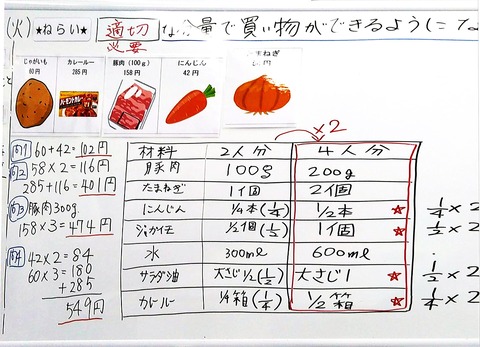 (火) ★ねらい★ 適切な分量で買い物ができるように
必要
じゃがいも
60円
カレールー
285円
豚肉(100g)
158円
にんじん
42円
まねぎ
バーモントカレー
×2
問1 60+42=102円
問2 58×2=116円
285+116=401円
問3 豚肉300g
158×3=474円
問4 42×2=84
60×3=180
+285
549円
材料 2人分 4人分
豚肉 100g 200g
たまねぎ 1個 2個
にんじん 1/4本(1/4) 1/2本 ★ 1/4×2
ジャガイモ 1/2個(1/2) 1個 ★ 1/2×2
水 300ml 600ml
サラダ油 大さじ1/2(1/2) 大さじ1 ★ 1/2×2
カレールー 1/4箱(1/4) 1/2箱 ★ 1/4×2